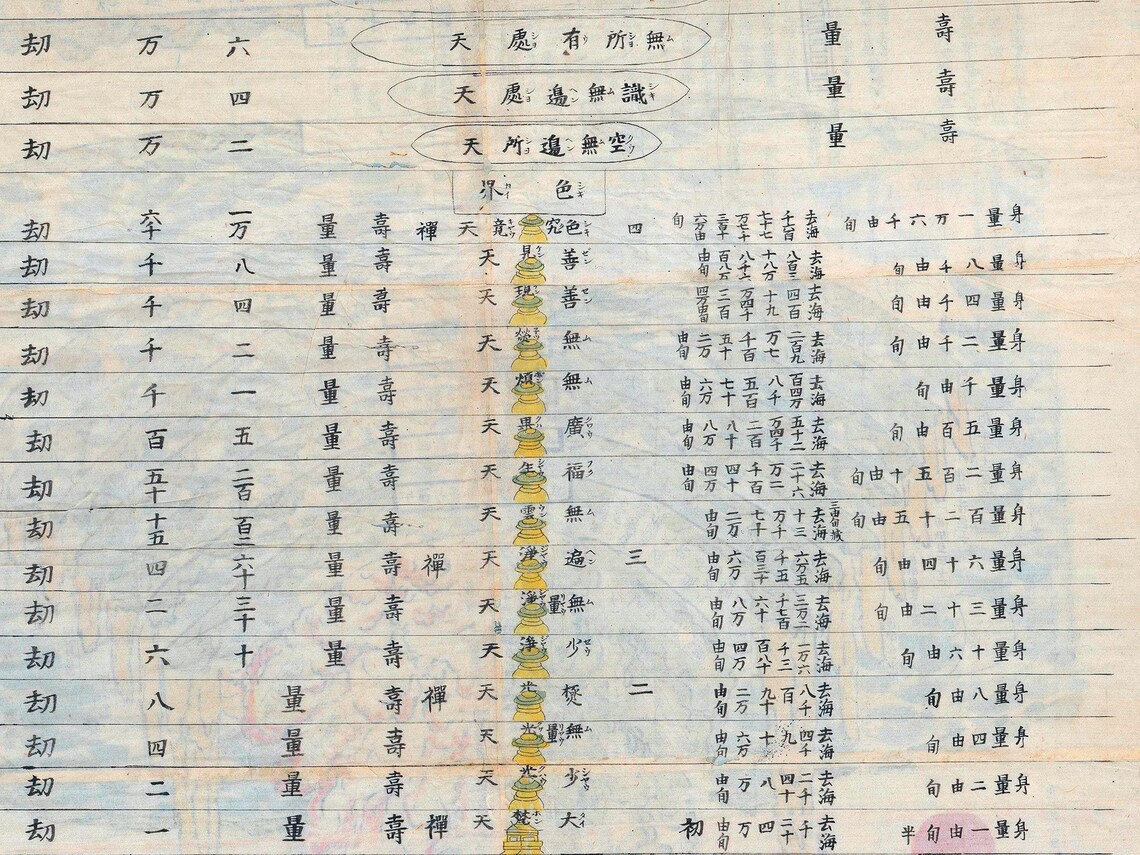 壽量 無所有處天 六万劫
壽量 識無邊處天 四万劫
壽量 空無邊所天 二万劫
色界
身量一万六千由旬 去海千六百七十七万七千二百十六万由旬 四 色究竟天禪 壽量一万六千劫
身量八千由旬 去海八百三十八万八千六百八万由旬 善見天 壽量八千劫
身量四千由旬 去海四百十九万四千三百四万由旬 善現天 壽量四千劫
身量二千由旬 去海二百九万七千百五十二万由旬 無熱天 壽量二千劫
身量千由旬 去海百四万八千五百七十六万由旬 無煩天 壽量一千劫
身量五百由旬 去海五十二万四千二百八十八万由旬 廣果天 壽量五百劫
身量二百五十由旬 去海二十六万二千百四十四万由旬 福生天 壽量二百五十劫
身量百二十五由旬 三由旬減 去海十三万千七十二万由旬 無雲天 壽量百二十五劫
身量六十四由旬 去海六万五千五百三十六万由旬 三 遍淨天禪 壽量六十四劫
身量三十二由旬 去海三万二千七百六十八万由旬 無量淨天 壽量三十二劫
身量十六由旬 去海一万六千三百八十四万由旬 少淨天 壽量十六劫
身量八由旬 去海八千百九十二万由旬 二 極光天禪 壽量八劫
身量四由旬 去海四千九十六万由旬 無量光天 壽量四劫
身量二由旬 去海二千四十八万由旬 少光天 壽量二劫
身量一由旬半 去海千二十四万由旬 初 大梵天禪 壽量一劫